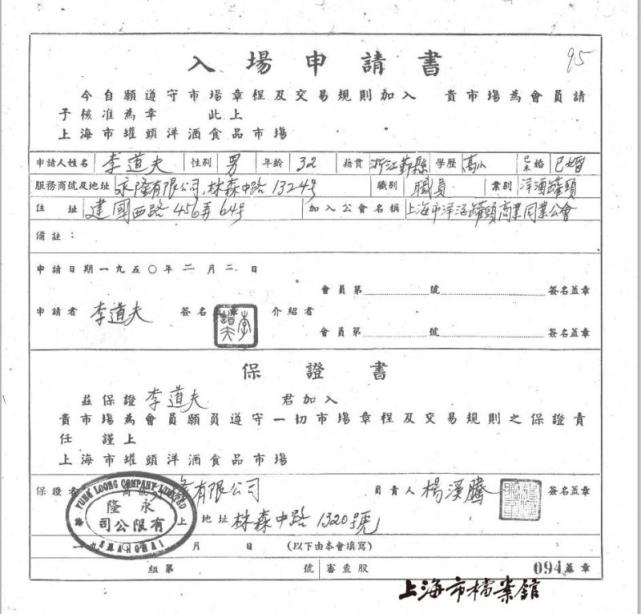 95
入場申請書
今自願遵守市場章程及交易規則加入 貴市場為會員請
予核准為章 此上
上海市罐頭洋酒食品市場
申請人姓名 李道夫 性別 男 年齡 32 籍貫 浙江鄞縣 學歷 高小 已未婚 已婚
服務商號及地址 永隆有限公司,林森中路1324號 職別 職員 業別 洋酒罐頭
住址 建國西路456弄64號 加入公會名稱 上海市洋酒罐頭商業同業公會
備註:
申請日期一九五〇年二月二日
會員第 號 簽名蓋章
申請者 李道夫 簽名蓋章 介紹者
會員第 號 簽名蓋章
保證書
茲保證 李道夫 君加入
貴市場為會員願負遵守一切市場章程及交易規則之保證責
任 謹上
上海市罐頭洋酒食品市場
保證者 有限公司 負責人 楊漢騰 簽名蓋章
YUNG LOONG COMPANY LIMITED
永隆
有限公司
上
地址 林森中路1320號
月 日 (以下由本會填寫)
組第 號 審查股 蓋章
094
上海市檔案館